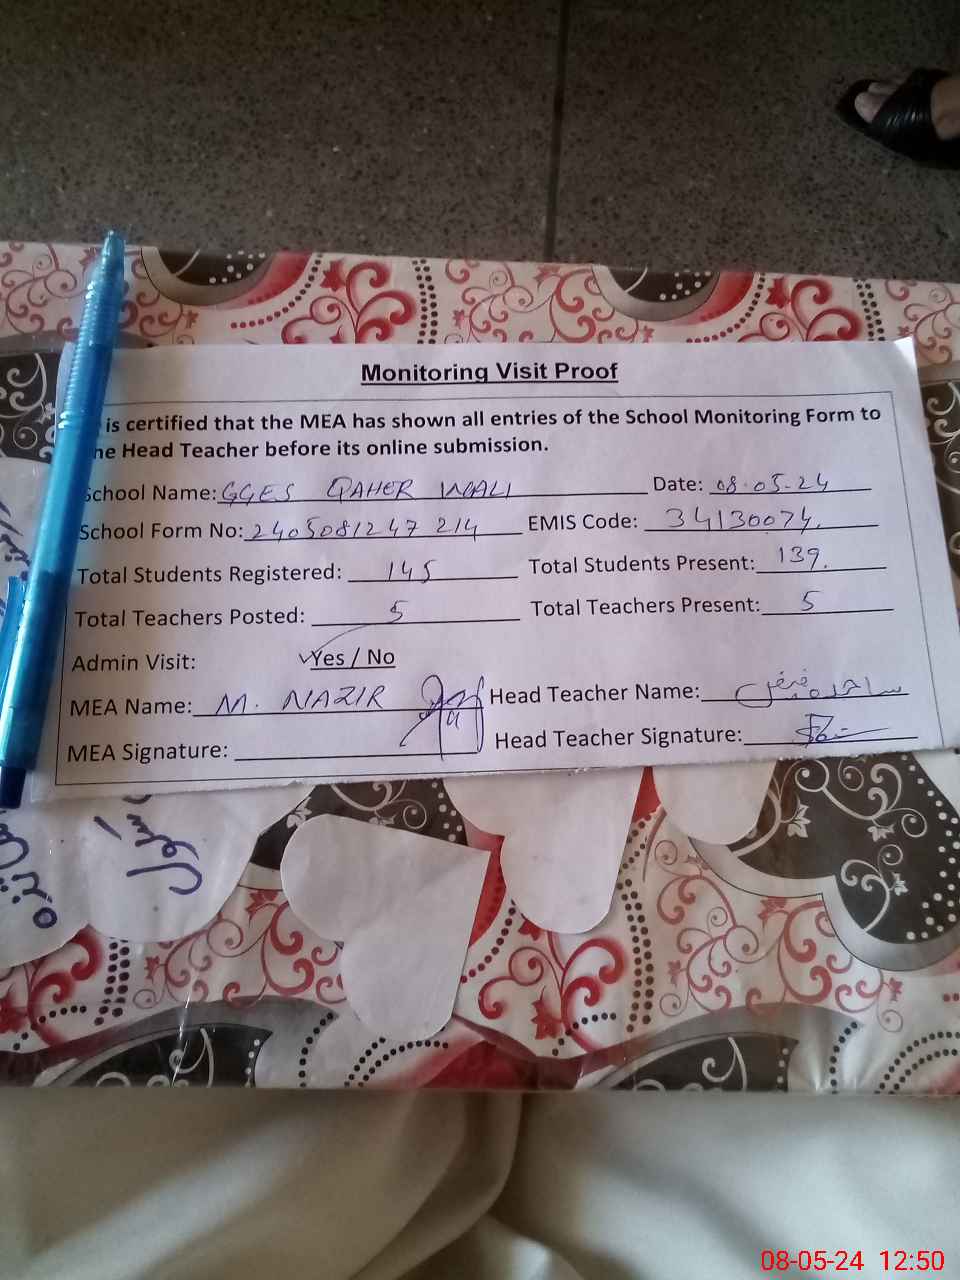 Monitoring Visit Proof
is certified that the MEA has shown all entries of the School Monitoring Form to
he Head Teacher before its online submission.
School Name: GGES QAHER WALI Date: 08.05-24
School Form No: 2405081247 214 EMIS Code: 34130074.
Total Students Registered: 145 Total Students Present: 139.
Total Teachers Posted: 5 Total Teachers Present: 5
Admin Visit: ✓Yes / No
MEA Name: M. NAZIR Head Teacher Name:
MEA Signature: Head Teacher Signature:
08-05-24 12:50